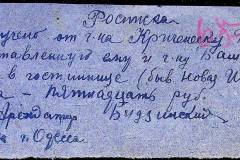 Росписка
получено от г-на Кригевскаго
ставленную ему и г-ну Баш
в гостиннице (быв. Новая И
а - пятнадцать руб.
Арендатор Будзинский
г. Одесса